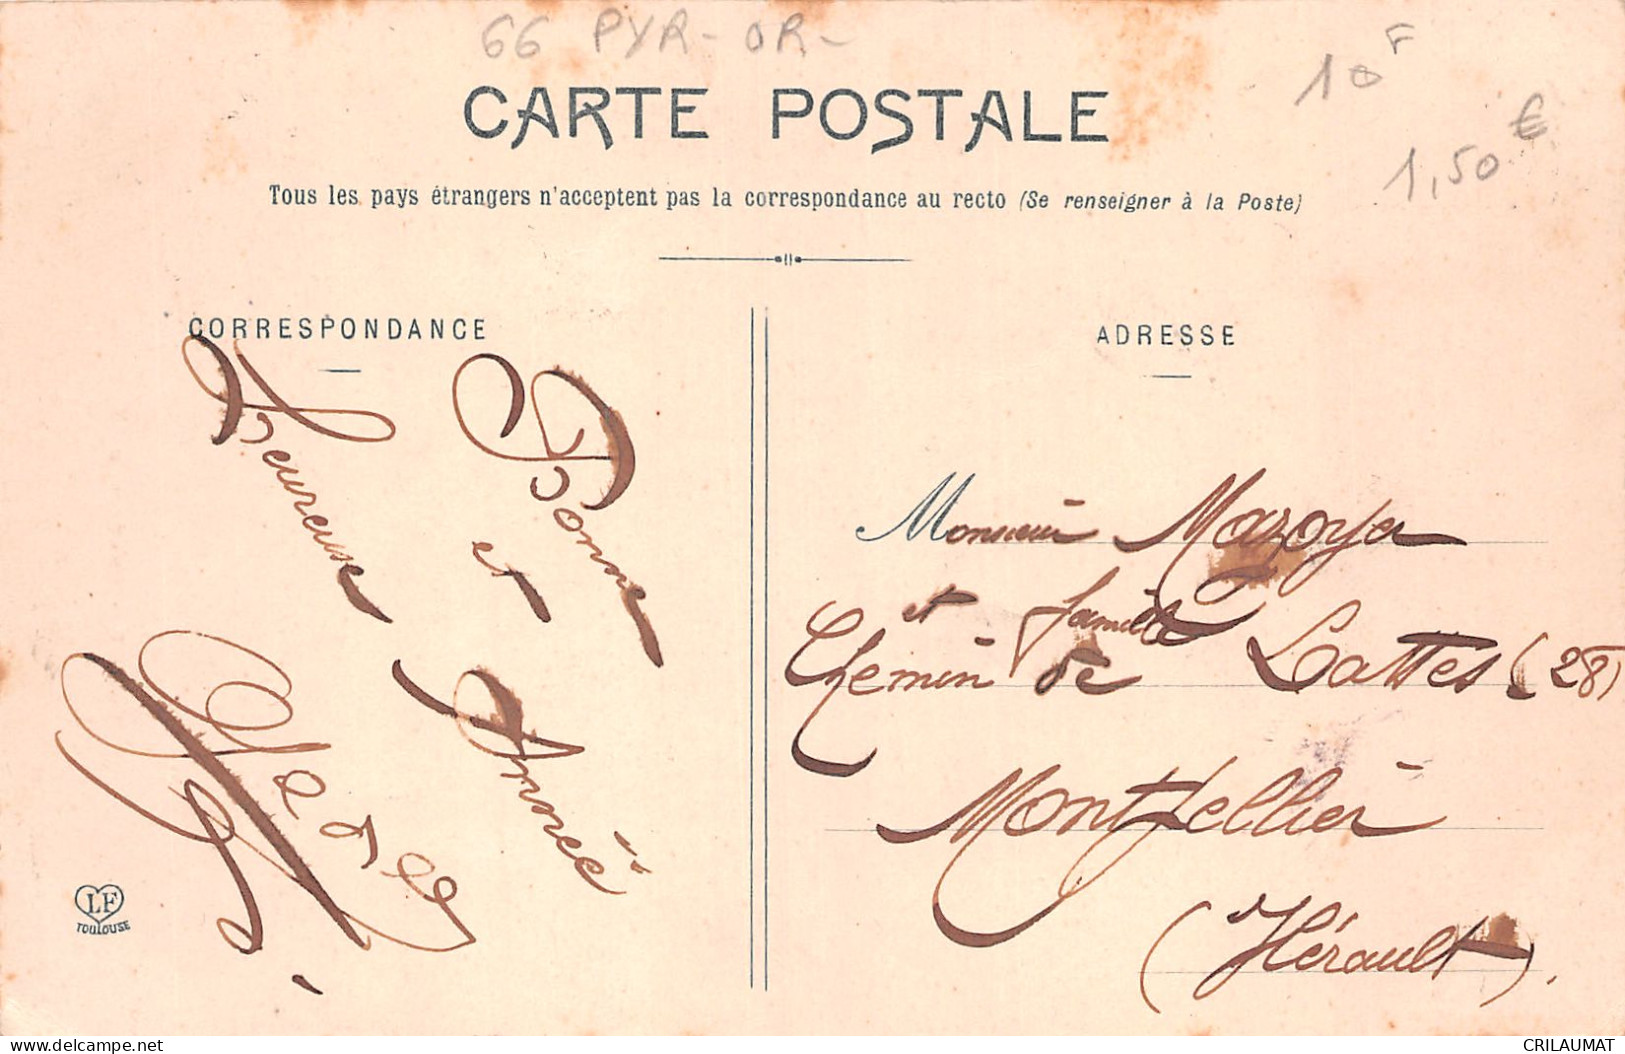 66 PYR-OR-
10F
1,50 €
CARTE POSTALE
Tous les pays étrangers n'acceptent pas la correspondance au recto (Se renseigner à la Poste)
CORRESPONDANCE
Bonne
et
heureuse
Année
LF
TOULOUSE
ADRESSE
Monsieur Mazoyer
et famille
Chemin de Lattes (28)
Montpellier
(Hérault).
delcampe.net
CRILAUMAT